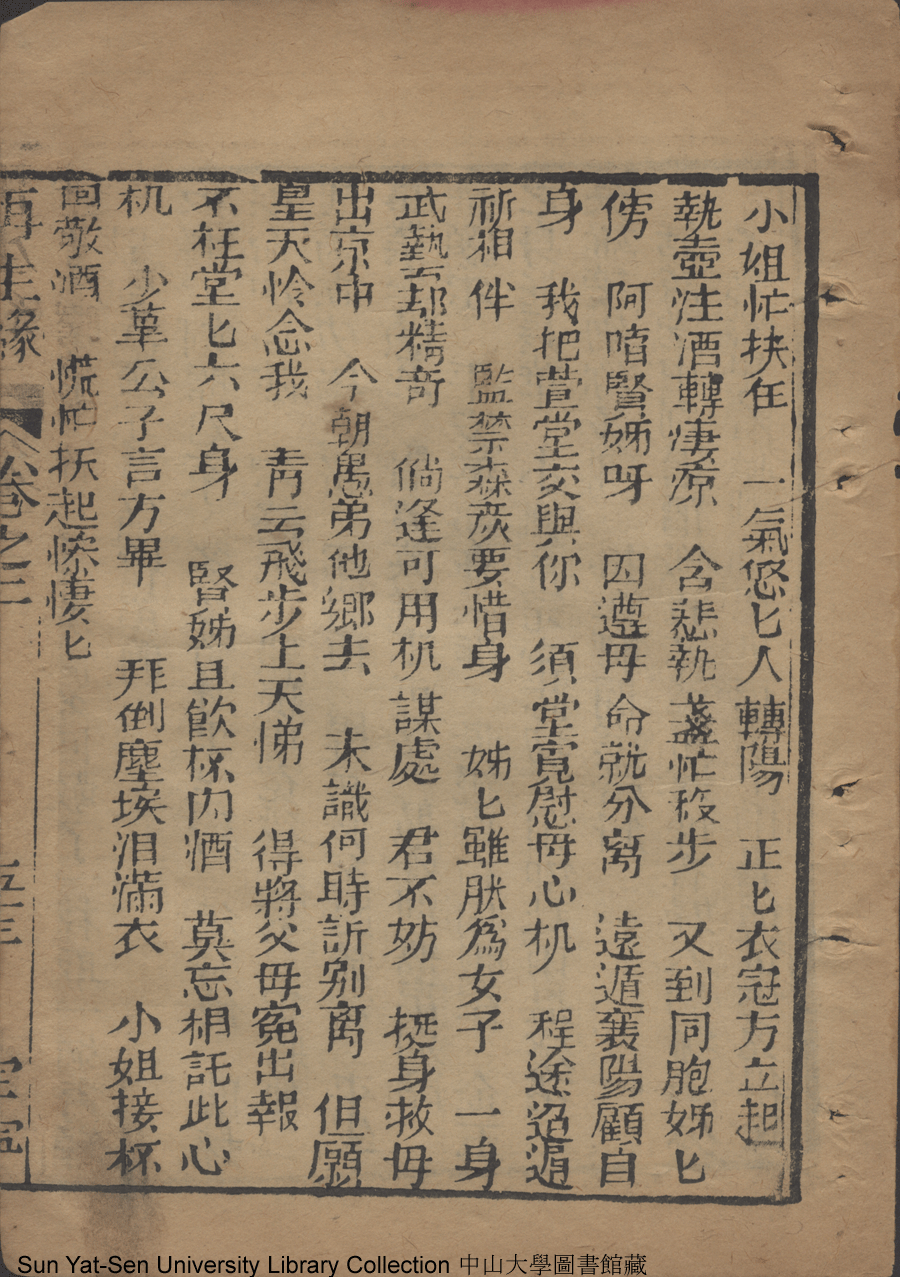 小姐忙扶住　一氣悠匕人轉陽　正匕衣冠方立起
執壺注酒轉凄凉　含悲執盞忙移步　又到同胞姊匕
傍　阿唷賢姊呀　因遵母命就分离　遠遁襄陽顧自
身　我把萱堂交與你　須堂寬慰母心机　程途迢遙
祈相伴　監禁森炭要惜身　姊匕雖肰爲女子　一身
武藝却精奇　倘逢可用机謀處　君不妨　挺身救母
出京中　今朝愚弟他鄉去　未識何時訴别离　但願
皇天怜念我　青云飛步上天悌　得將父母寃出報
不枉堂匕六尺身　賢姊且飲杯内酒　莫忘相託此心
机　少華公子言方畢　拜倒塵埃泪滿衣　小姐接杯
回敬酒　慌忙扶起慘悽匕
再生緣　卷之二